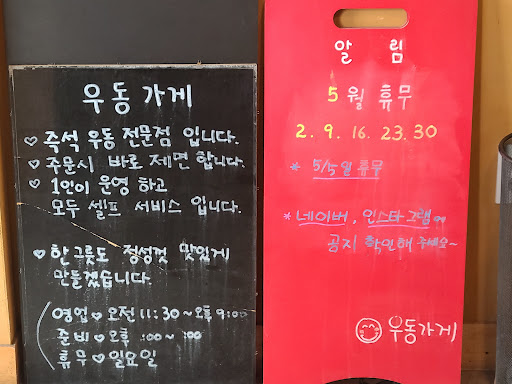 우동가게
♡ 즉석 우동 전문점 입니다.
♡ 주문시 바로 제면 합니다.
♡ 1인이 운영 하고
모두 셀프 서비스 입니다.
♡ 한그릇도 정성껏 맛있게
만들겠습니다.
영업 ♡ 오전 11:30 ~ 오후 9:00
준비 ♡ 오후 :00 ~ :00
휴무 ♡ 일요일
알 림
5월 휴무
2. 9. 16. 23. 30
* 5/5일 휴무
* 네이버, 인스타그램에
공지 확인해 주세요~
우동가게